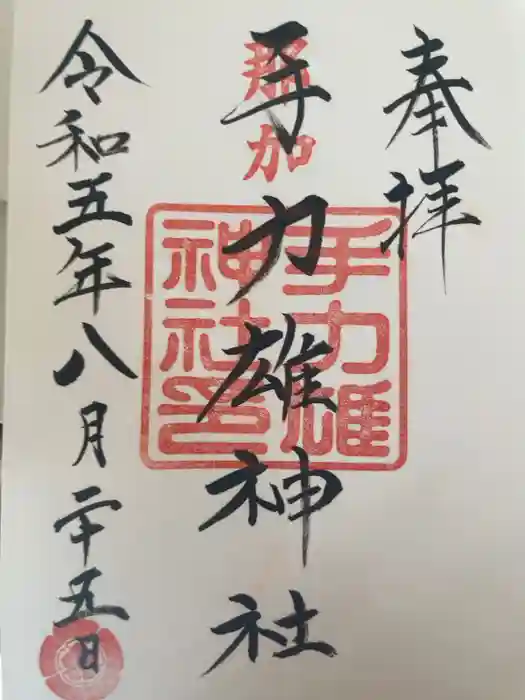 奉拝
那加
手力雄神社
手力雄
神社印
令和五年八月二十五日